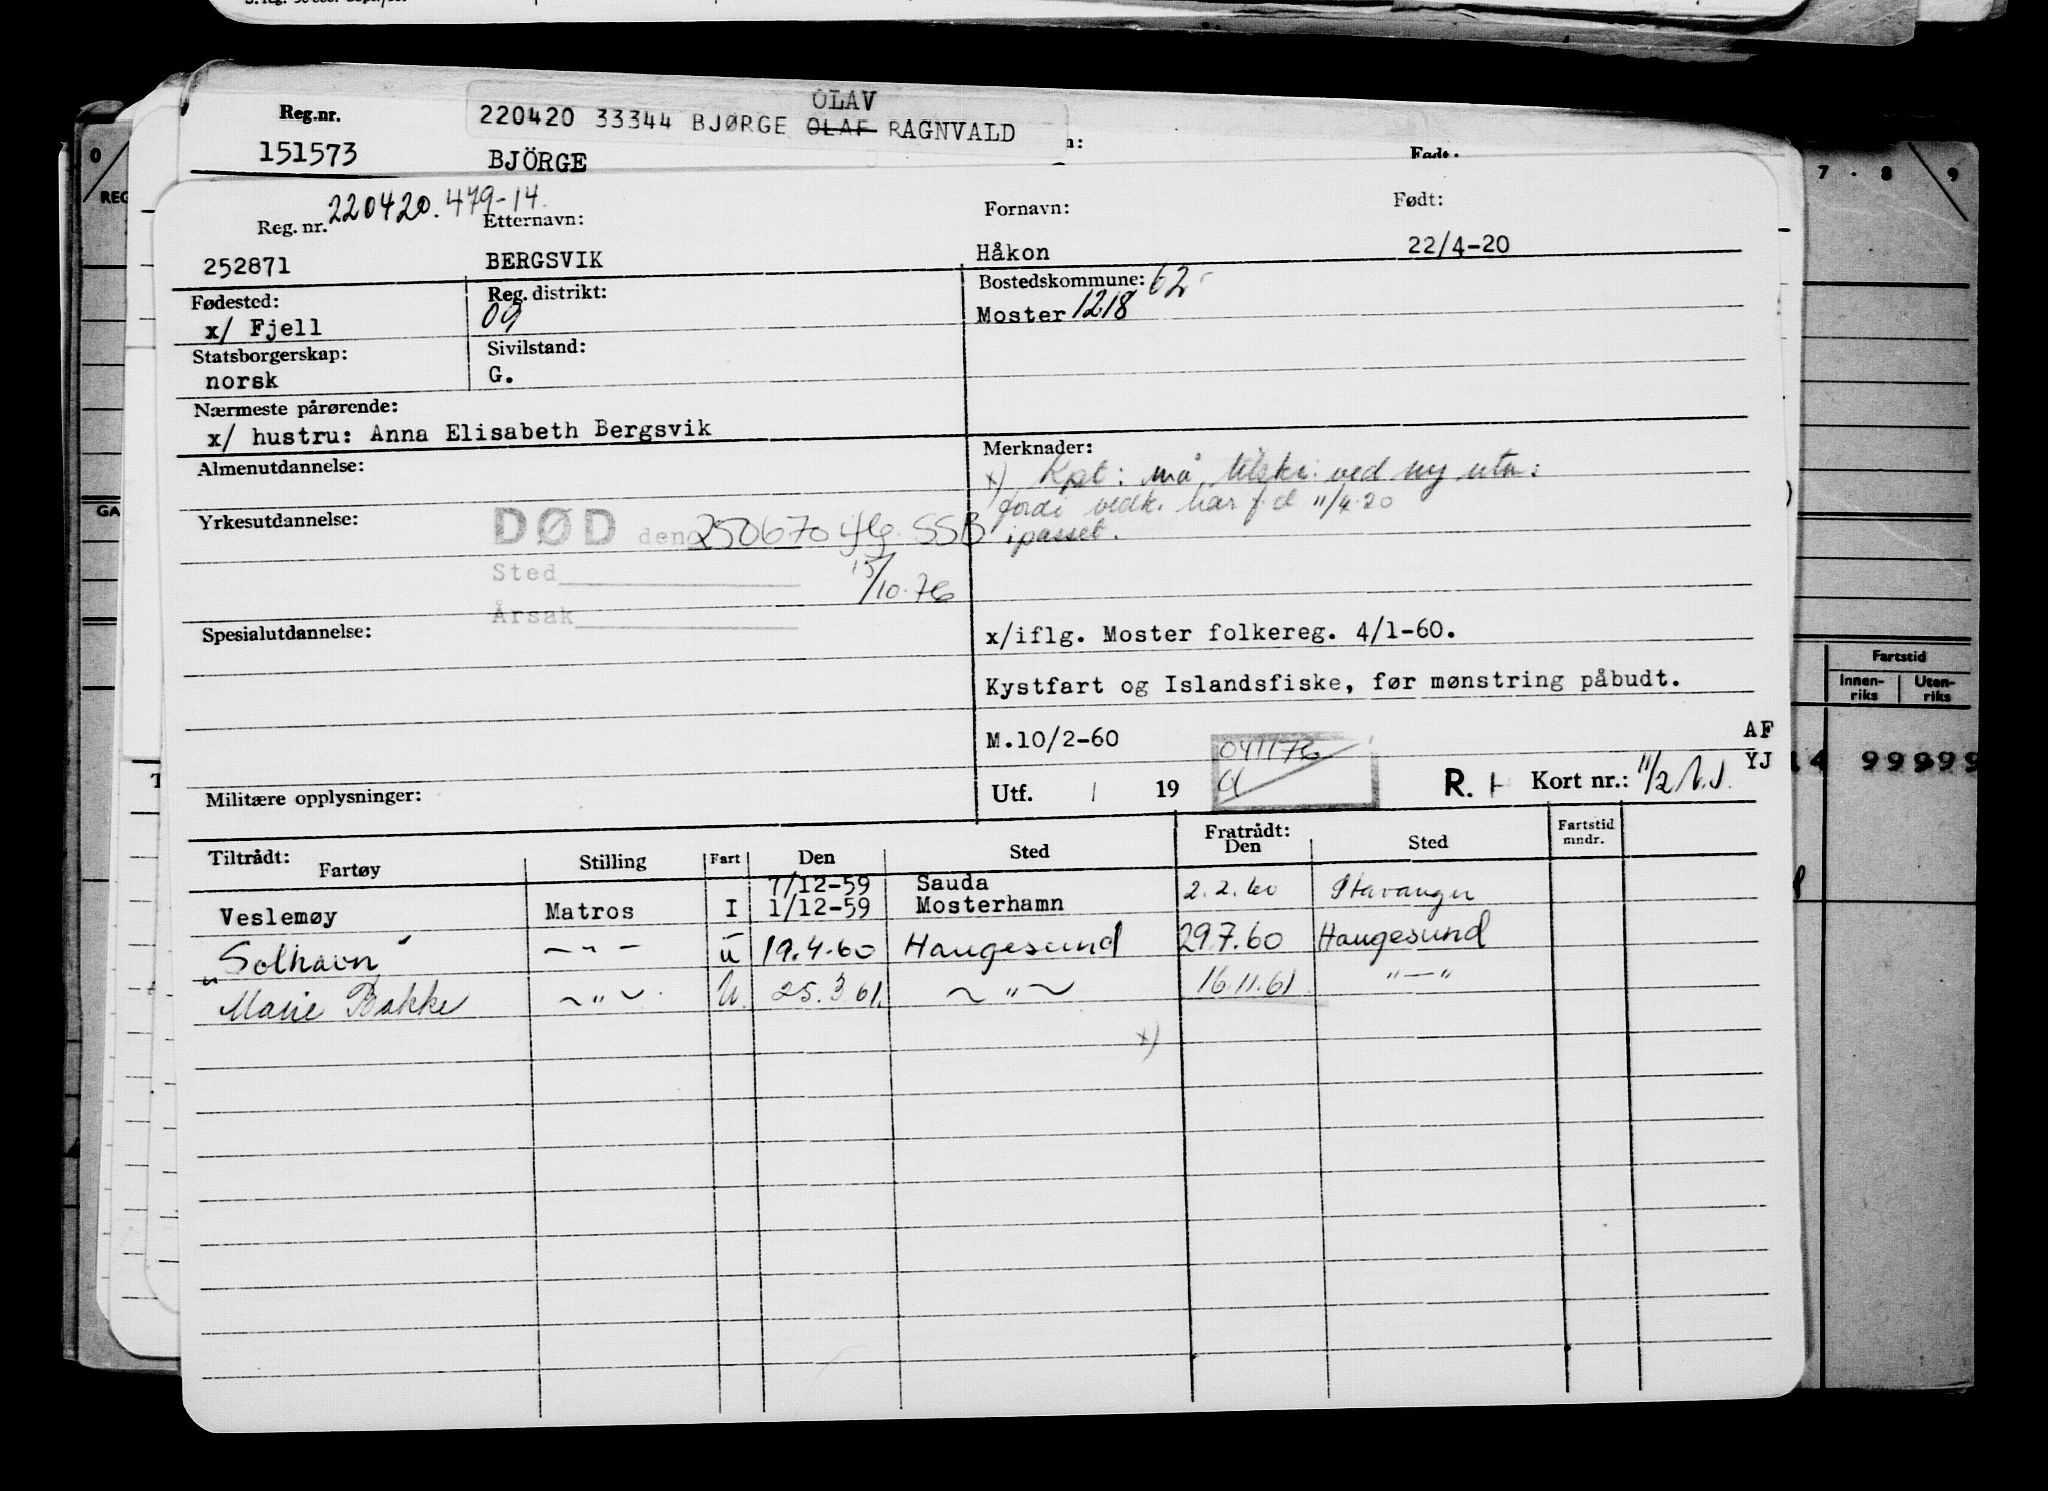 OLAV
Reg.nr. 220420 33344 BJØRGE OLAF RAGNVALD
151573 BJÖRGE
7 . 8 9
Reg. nr. 220420.479-14. Etternavn: Fornavn: Født:
252871 BERGSVIK Håkon 22/4-20
Fødested: Reg. distrikt: Bostedskommune: 62
x/ Fjell 09 Moster 1218
Statsborgerskap: Sivilstand:
norsk G.
Nærmeste pårørende:
x/ hustru: Anna Elisabeth Bergsvik
Almenutdannelse: Merknader:
x) Kpt: må tilskr. ved ny utm:
fordi vedk. har f.d 11/4-20
i passet.
Yrkesutdannelse: DØD den 250670 iflg. SSB
Sted 15/10-76
Årsak
Spesialutdannelse: x/iflg. Moster folkereg. 4/1-60.
Kystfart og Islandsfiske, før mønstring påbudt.
M.10/2-60 041176 AF
YJ
Militære opplysninger: Utf. / 19 R. Kort nr.:
Fartstid
Innen-riks Uten-riks
99999
Tiltrådt: Fratrådt:
Fartøy Stilling Fart Den Sted Den Sted Fartstid mndr.
7/12-59 Sauda
Veslemøy Matros I 1/12-59 Mosterhamn 2.2.60 Stavanger
"Solhavn" — " — u 19.4.60 Haugesund 29.7.60 Haugesund
Marie Bakke ~ " ~ U. 25.3.61. ~ " ~ 16.11.61 " — "
x)